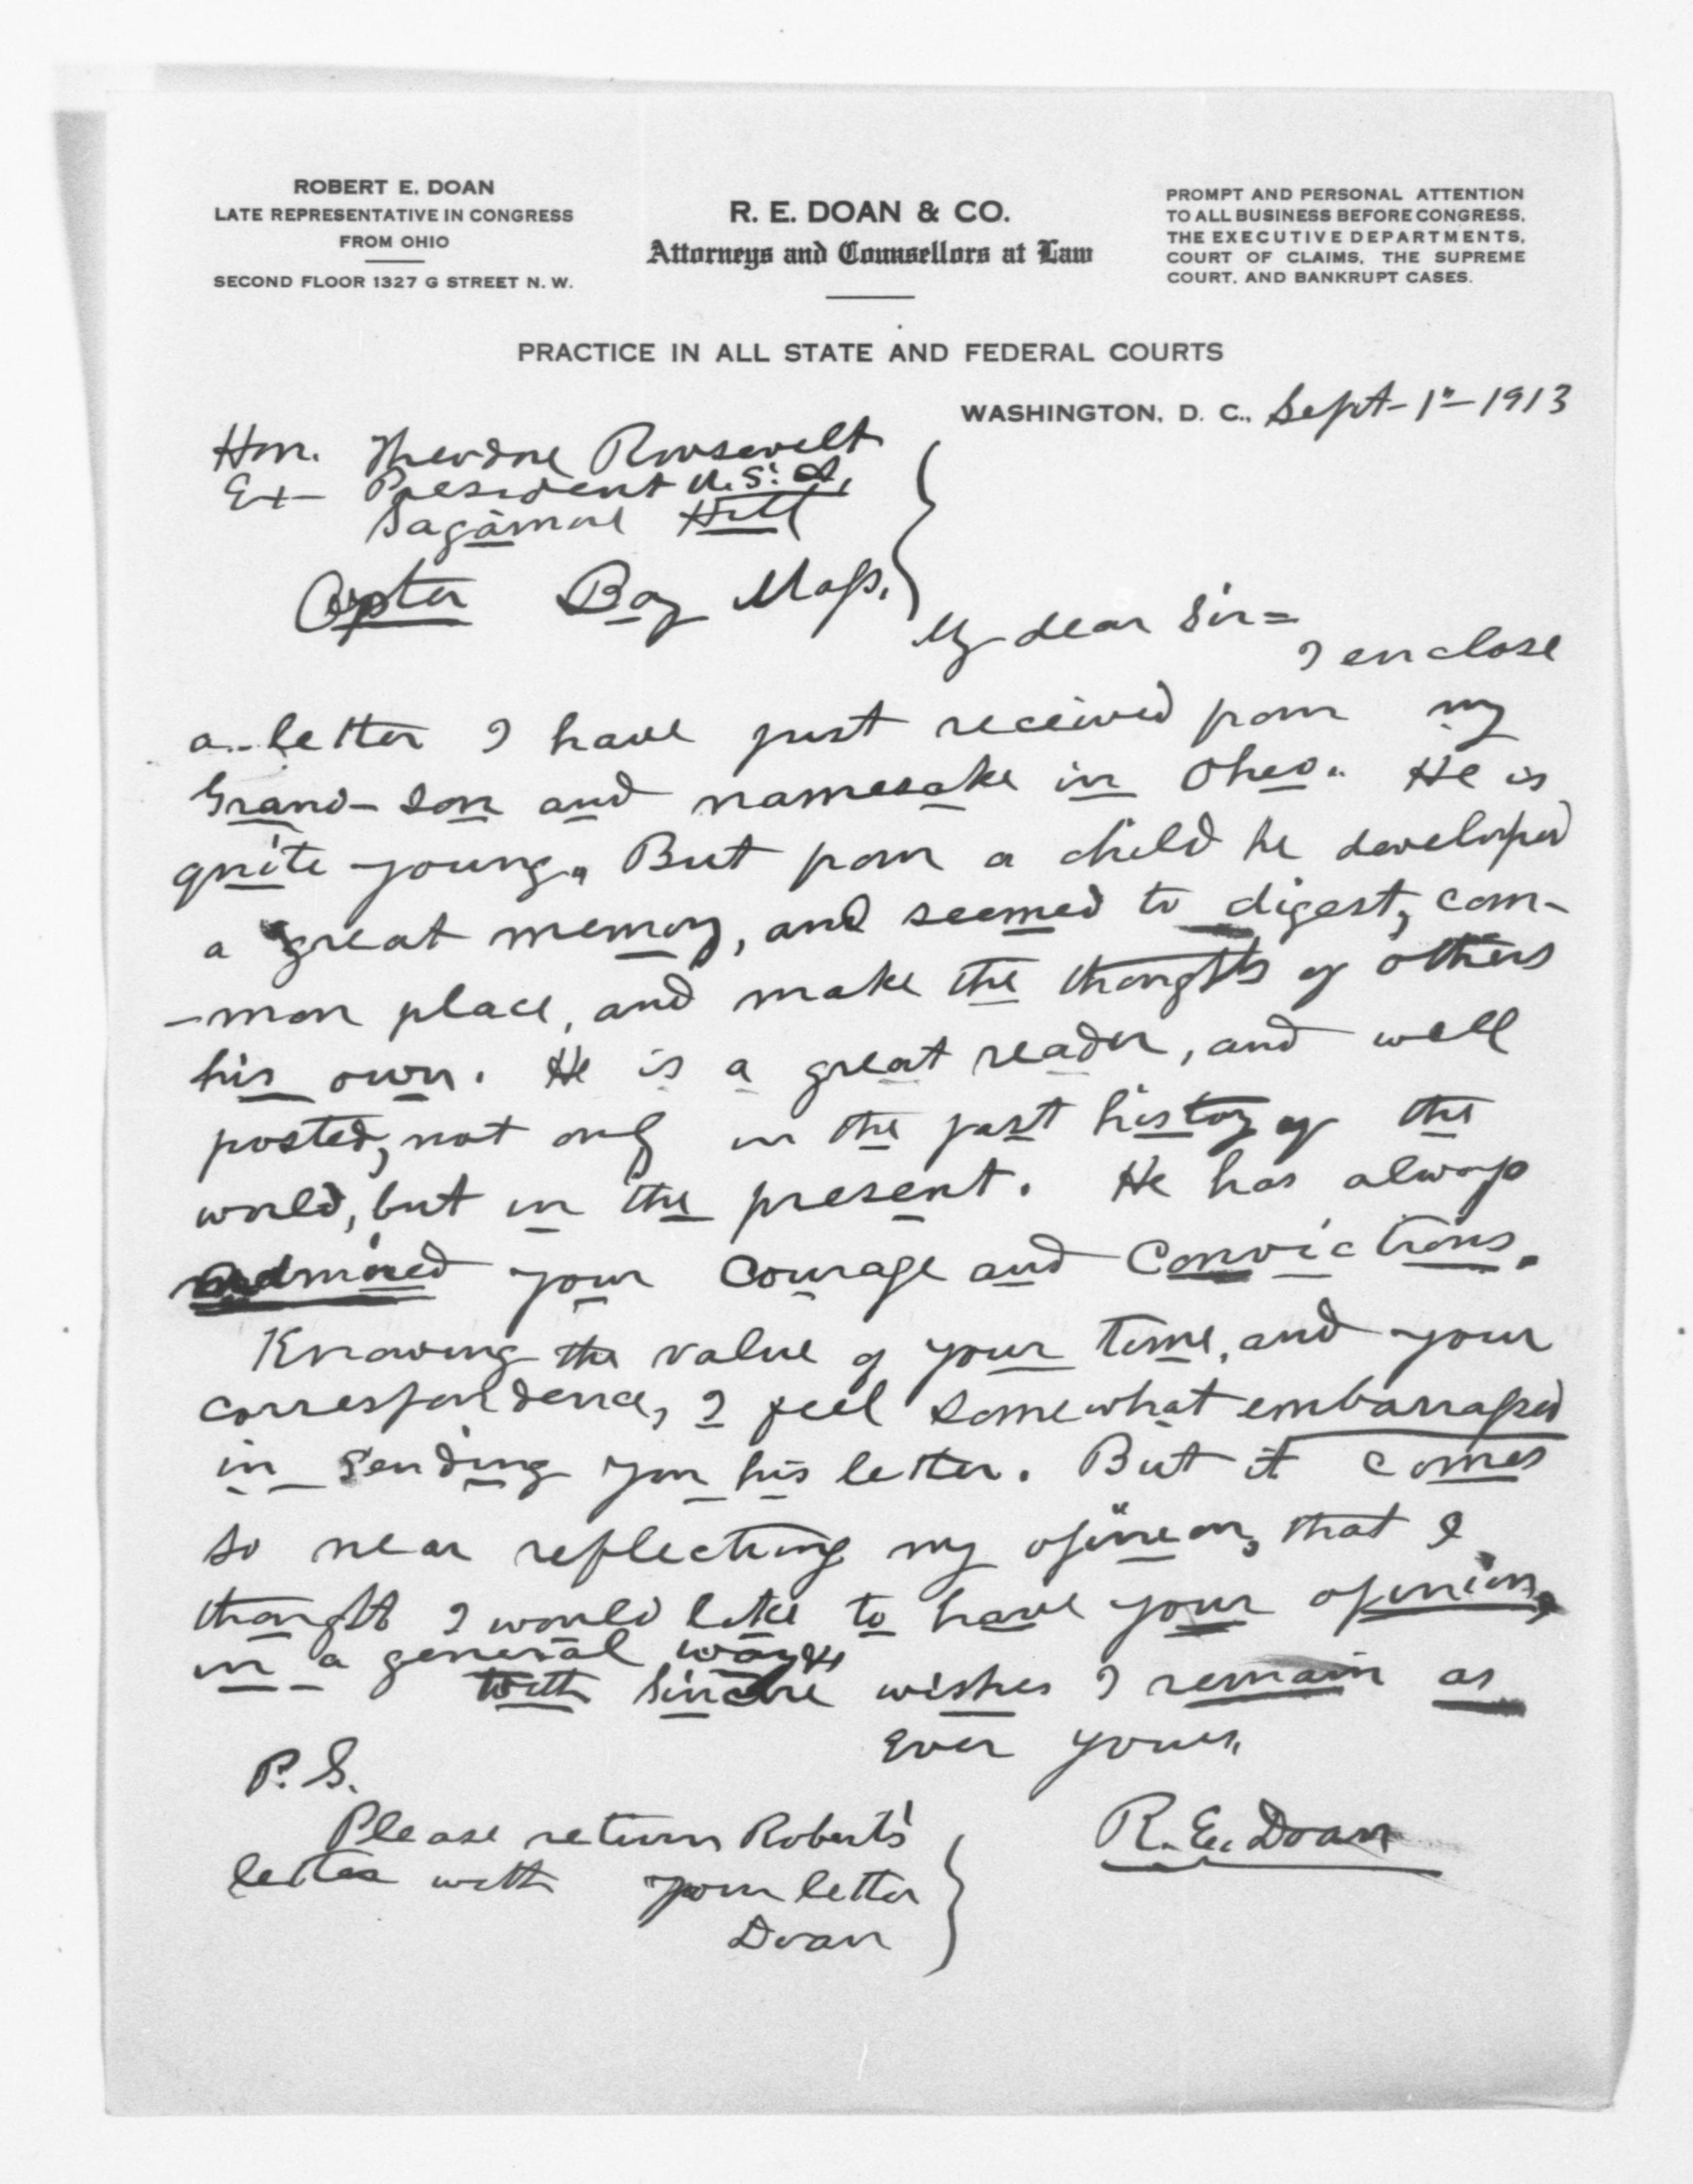 ROBERT E. DOAN
LATE REPRESENTATIVE IN CONGRESS
FROM OHIO
SECOND FLOOR 1327 G STREET N. W.
R. E. DOAN & CO.
Attorneys and Counsellors at Law
PROMPT AND PERSONAL ATTENTION
TO ALL BUSINESS BEFORE CONGRESS,
THE EXECUTIVE DEPARTMENTS,
COURT OF CLAIMS, THE SUPREME
COURT, AND BANKRUPT CASES.
PRACTICE IN ALL STATE AND FEDERAL COURTS
WASHINGTON, D. C., Sept-1"-1913
Hon. Theodore Roosevelt
Ex- President U.S.A.
Sagamore Hill
Oyster Bay Mass.
My dear Sir=
I enclose
a letter I have just received from my
Grand-son and namesake in Ohio. He is
quite young. But from a child he developed
a great memory, and seemed to digest, com-
-mon place, and make the thoughts of others
his own. He is a great reader, and well
posted, not only in the past history of the
world, but in the present. He has always
admired your courage and convictions.
Knowing the value of your time, and your
correspondence, I feel somewhat embarrassed
in sending you his letter. But it comes
so near reflecting my opinion, that I
thought I would like to have your opinion,
in a general way.
With sincere wishes I remain as
ever yours,
R. E. Doan
P. S.
Please return Robert's
letter with your letter
Doan